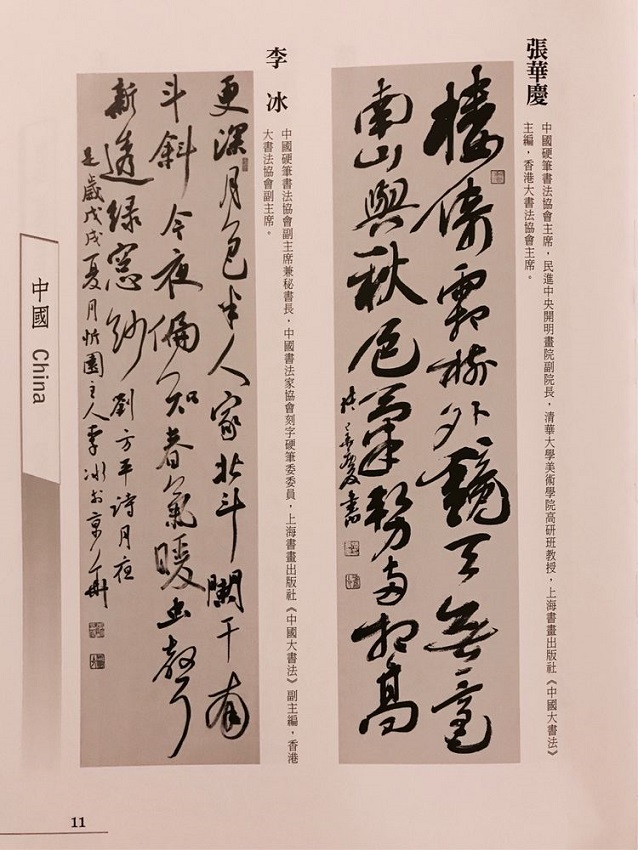 張華慶
中國硬筆書法協會主席，民進中央開明畫院副院長，清華大學美術學院高研班教授，上海書畫出版社《中國大書法》
主編，香港大書法協會主席。
樓倚霜樹外鏡天無一毫
南山與秋色氣勢兩相高
張華慶書
李 冰
中國硬筆書法協會副主席兼秘書長，中國書法家協會刻字硬筆委委員，上海書畫出版社《中國大書法》副主編，香港
大書法協會副主席。
更深月色半人家北斗闌干南
斗斜今夜偏知春氣暖虫聲
新透緑窓紗 劉方平詩月夜
是歲戊戌夏月忻園主人李冰於京華
中國 China
11